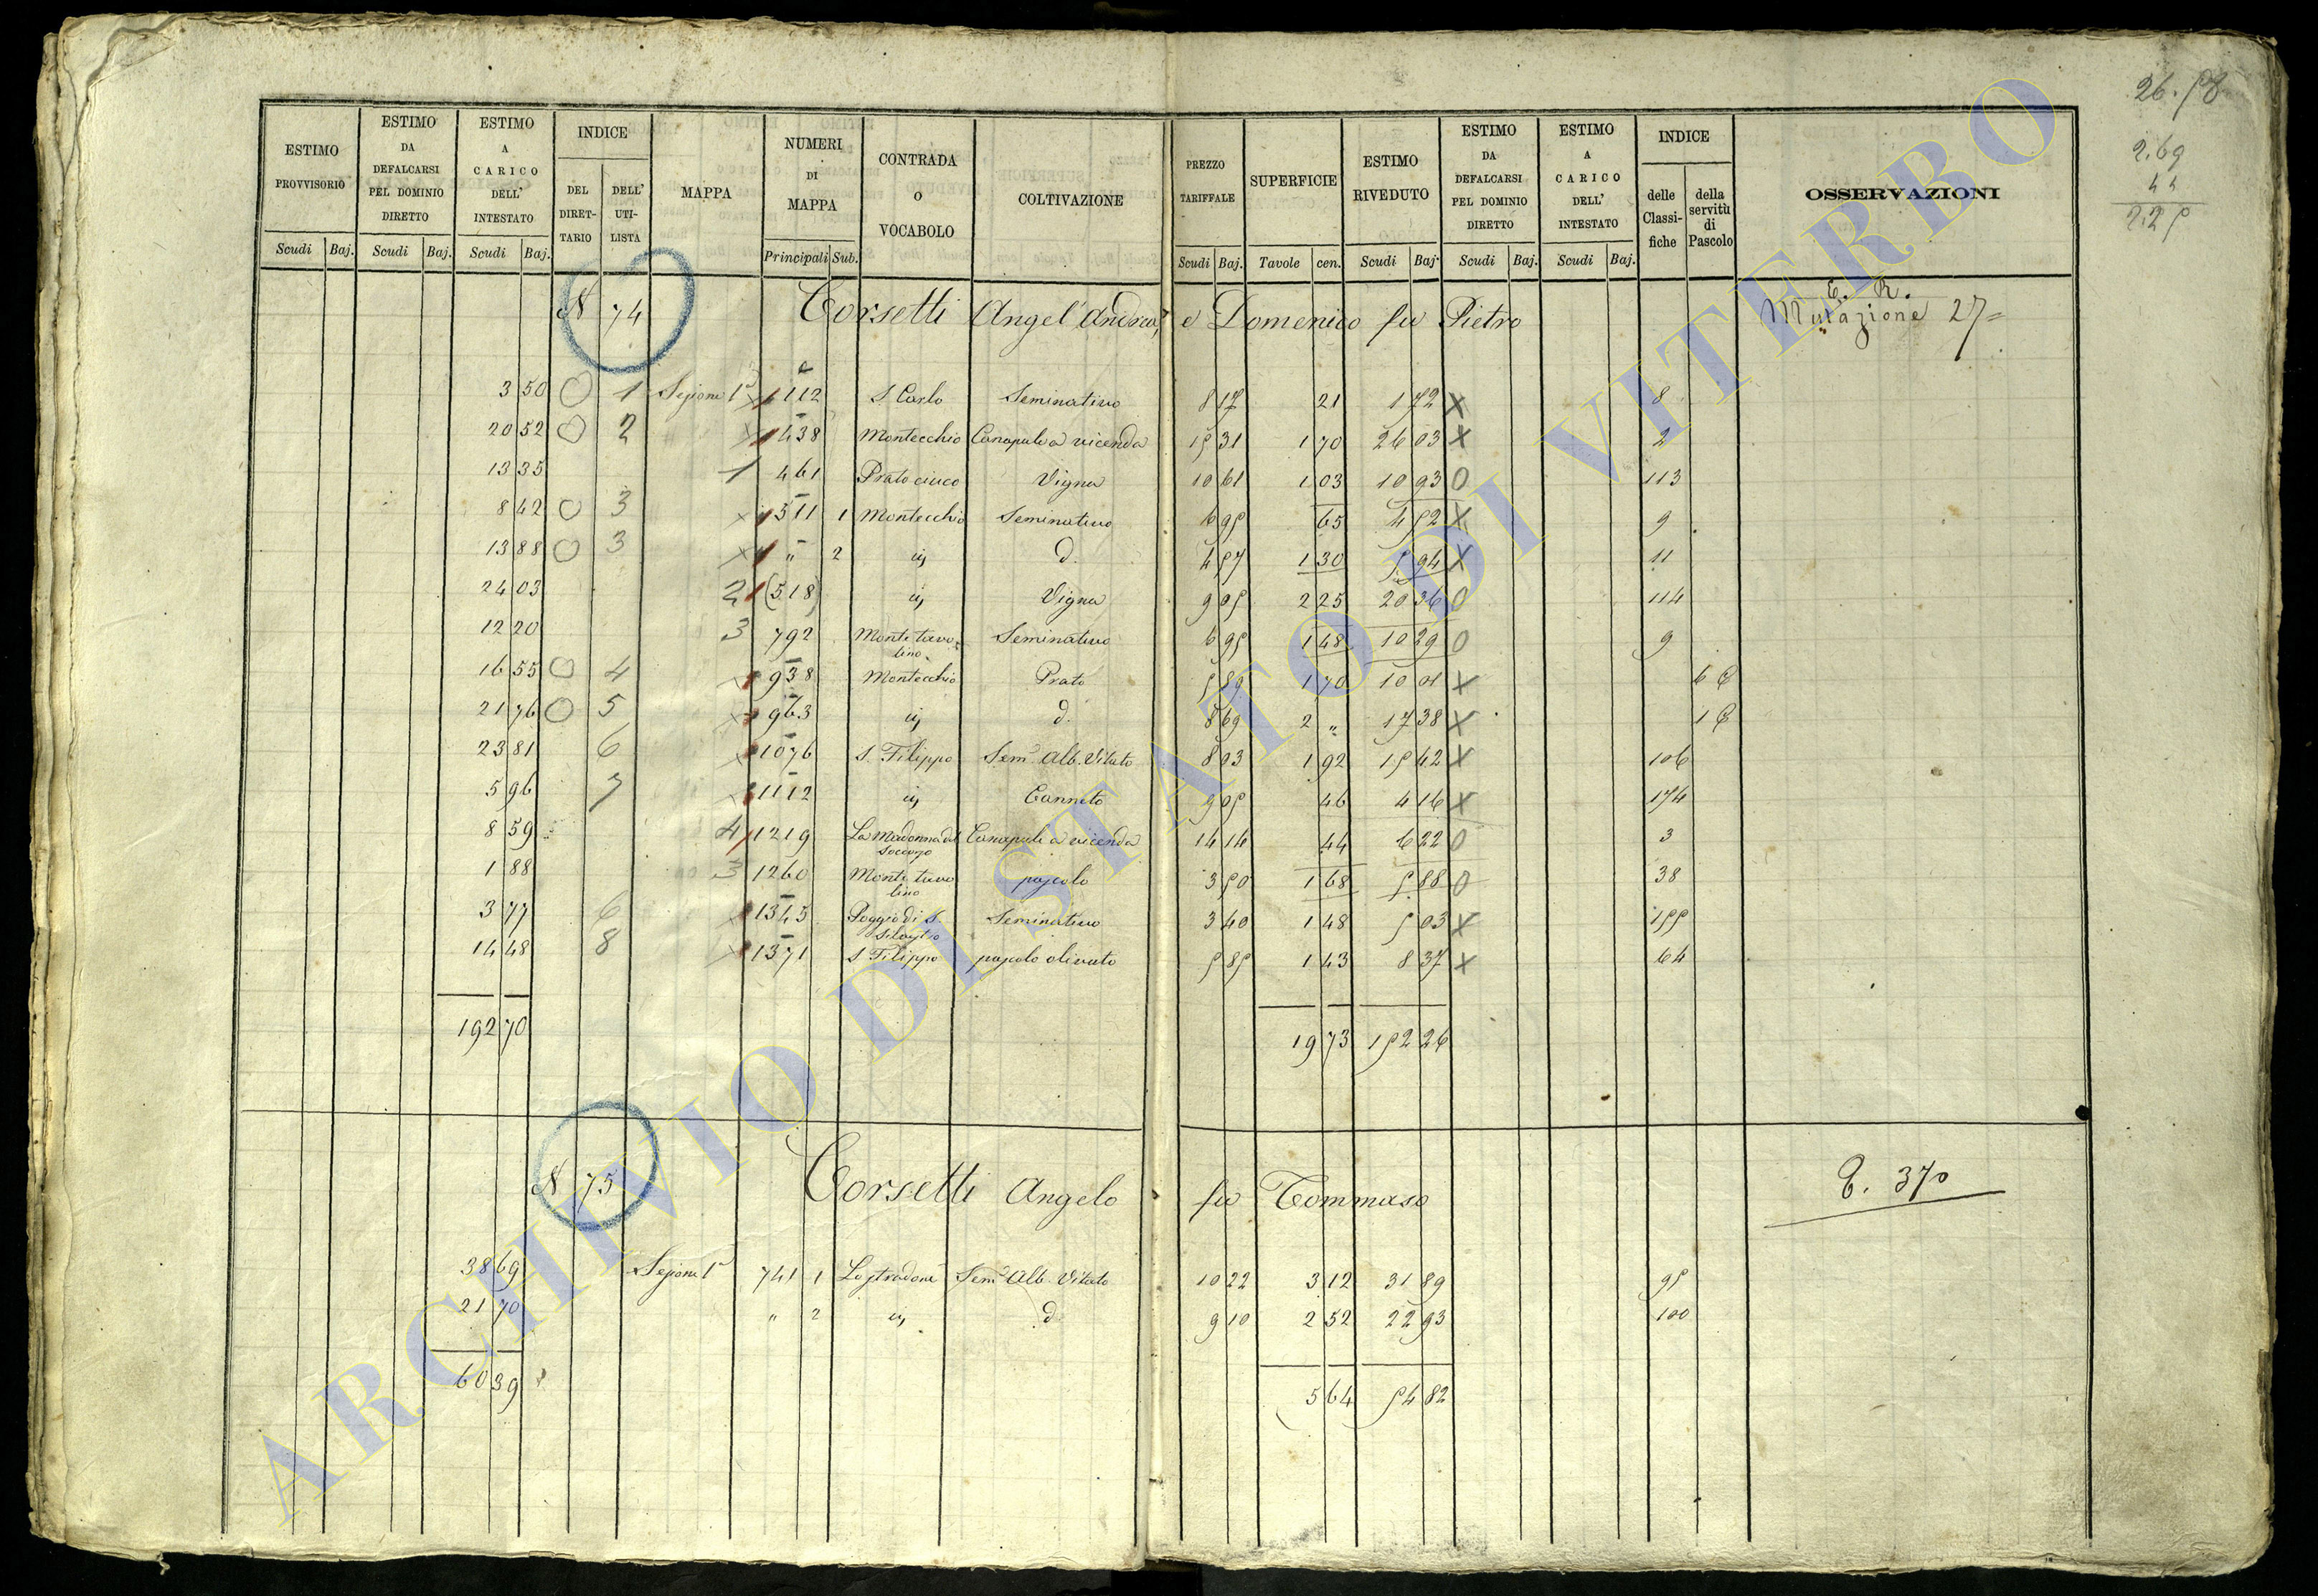 ESTIMO PROVVISORIO Scudi Baj.
ESTIMO DA DEFALCARSI PEL DOMINIO DIRETTO Scudi Baj.
ESTIMO A CARICO DELL' INTESTATO Scudi Baj.
INDICE DEL DIRET- TARIO DELL' UTI- LISTA
MAPPA
NUMERI DI MAPPA Principali Sub.
CONTRADA O VOCABOLO
COLTIVAZIONE
PREZZO TARIFFALE Scudi Baj.
SUPERFICIE Tavole cen.
ESTIMO RIVEDUTO Scudi Baj.
ESTIMO DA DEFALCARSI PEL DOMINIO DIRETTO Scudi Baj.
ESTIMO A CARICO DELL' INTESTATO Scudi Baj.
INDICE delle Classi- fiche della servitù di Pascolo
OSSERVAZIONI
26.58
2.69
44
2.25
N 74 Corsetti Angel'Andrea, e Domenico fu Pietro
Mutazione 27
3 50 O 1 Sezione 1ª 112 S Carlo Seminativo 8 17 21 1 72 X 8
20 52 O 2 438 Montecchio Canapule a vicenda 15 31 1 70 26 03 X 2
13 35 1 461 Prato cieco Vigna 10 61 1 03 10 93 O 113
8 42 O 3 511 1 Montecchio Seminativo 6 95 65 4 52 X 9
13 88 O 3 " 2 id. d. 4 57 1 30 5 94 X 11
24 03 2 (518) id. Vigna 9 05 2 25 20 36 O 114
12 20 3 792 Monte tavo= lino Seminativo 6 95 1 48 10 29 O 9
16 55 O 4 938 Montecchio Prato 5 89 1 70 10 01 X
21 76 O 5 963 id. d. 8 69 2 " 17 38 X
23 81 6 1076 S. Filippo Sem.º Alb. Vitato 8 03 1 92 15 42 X 106
5 96 7 1112 id. Canneto 9 05 46 4 16 X 174
8 59 4 1219 La Madonna del Soccorso Canapule a vicenda 14 14 44 6 22 O 3
1 88 3 1260 Monte tavo lino pascolo 3 50 1 68 5 88 O 38
3 77 6 1345 Poggio di S. Seminativo 3 40 1 48 5 03 X 155
14 48 8 1371 S Filippo pascolo olivato 5 85 1 43 8 37 X 64
192 70 19 73 152 26
N 75 Corsetti Angelo fu Tommaso
E. 370
38 69 Sezione 1ª 741 1 Lo stradone Sem.º Alb. Vitato 10 22 3 12 31 89 95
21 70 " 2 id. d 9 10 2 52 22 93 100
60 39 5 64 54 82
ARCHIVIO DI STATO DI VITERBO